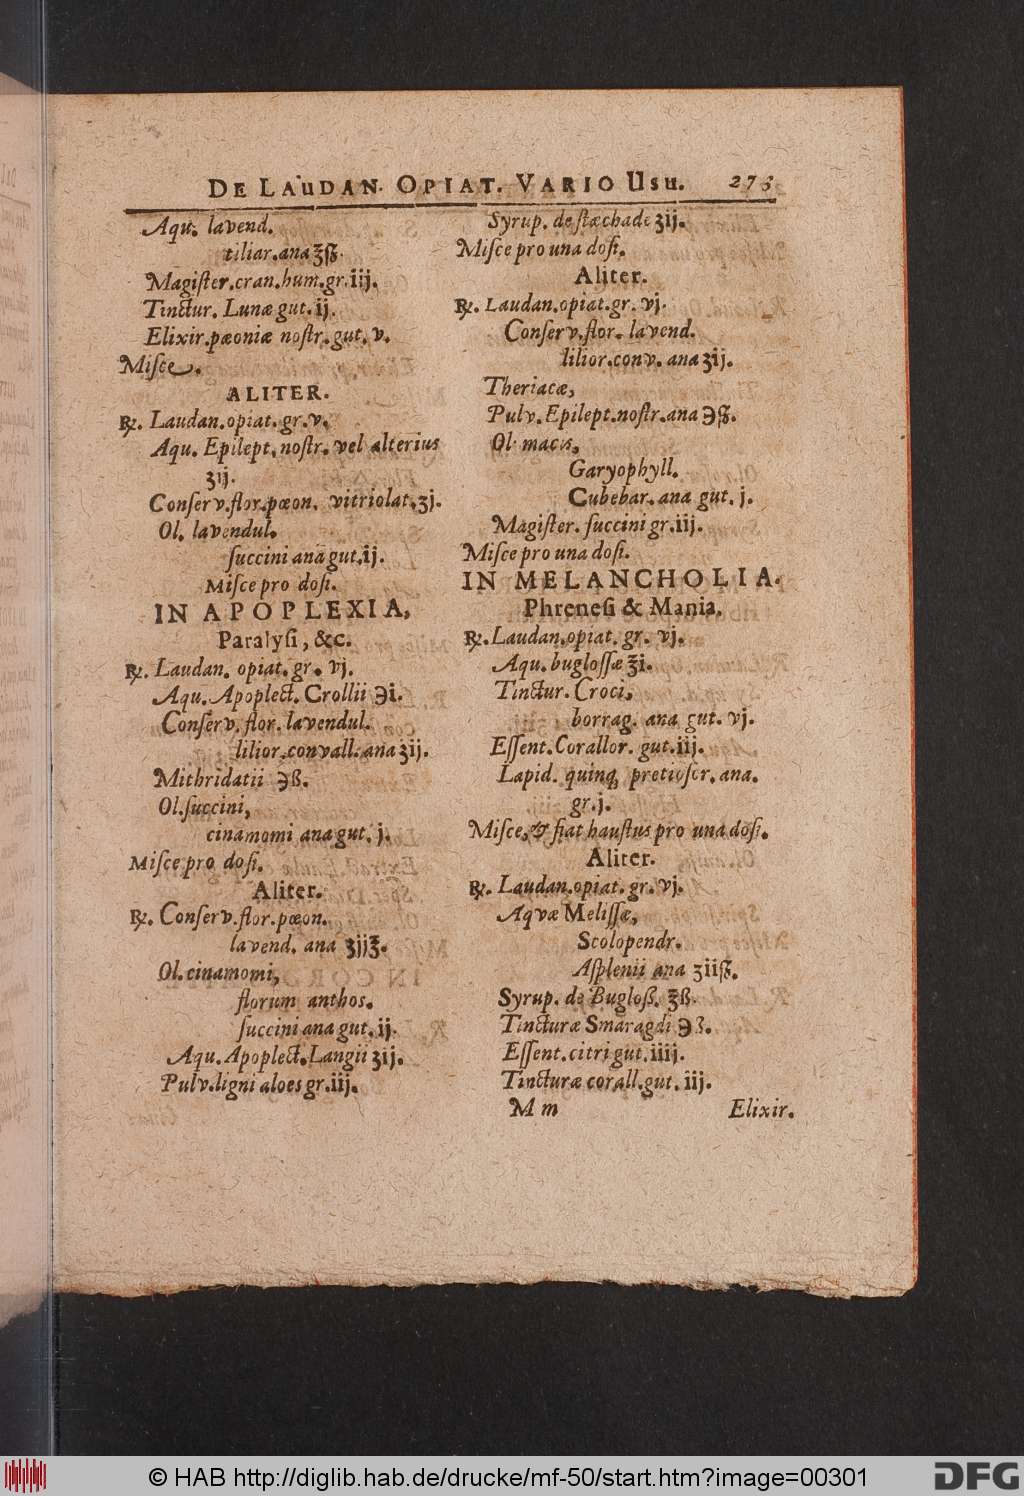 DE LAUDAN. OPIAT. VARIO USU. 273
Aqu. lavend.
tiliar. ana ℥ſß.
Magiſter. cran. hum. gr. iij.
Tinctur. Lunæ gut. ij.
Elixir. pæoniæ noſtr. gut. v.
Miſce.
ALITER.
℞. Laudan. opiat. gr. v.
Aqu. Epilept. noſtr. vel alterius
ʒij.
Conſerv. flor. pæon. vitriolat. ʒj.
Ol. lavendul.
ſuccini ana gut. ij.
Miſce pro doſi.
IN APOPLEXIA,
Paralyſi, &c.
℞. Laudan. opiat. gr. vj.
Aqu. Apoplect. Crollii ℈i.
Conſerv. flor. lavendul.
lilior. convall. ana ʒij.
Mithridatii ℈ß.
Ol. ſuccini,
cinamomi ana gut. j.
Miſce pro doſi.
Aliter.
℞. Conſerv. flor. pæon.
lavend. ana ʒjj℥.
Ol. cinamomi,
florum anthos.
ſuccini ana gut. ij.
Aqu. Apoplect. Langii ʒij.
Pulv. ligni aloes gr. iij.
Syrup. de ſtæchade ʒij.
Miſce pro una doſi.
Aliter.
℞. Laudan. opiat. gr. vj.
Conſerv. flor. lavend.
lilior. conv. ana ʒij.
Theriacæ,
Pulv. Epilept. noſtr. ana ℈ſß.
Ol. macis,
Garyophyll.
Cubebar. ana gut. j.
Magiſter. ſuccini gr. iij.
Miſce pro una doſi.
IN MELANCHOLIA.
Phreneſi & Mania.
℞. Laudan. opiat. gr. vj.
Aqu. bugloſſæ ℥i.
Tinctur. Croci,
borrag. ana gut. vj.
Eſſent. Corallor. gut. iij.
Lapid. quinq; pretioſer. ana.
gr. j.
Miſce, & fiat hauſtus pro una doſi.
Aliter.
℞. Laudan. opiat. gr. vj.
Aqvæ Meliſſæ,
Scolopendr.
Aſplenii ana ʒiiſß.
Syrup. de Bugloß. ℥ß.
Tincturæ Smaragdi ℈ß.
Eſſent. citri gut. iiij.
Tincturæ corall. gut. iij.
M m Elixir.
© HAB http://diglib.hab.de/drucke/mf-50/start.htm?image=00301
DFG